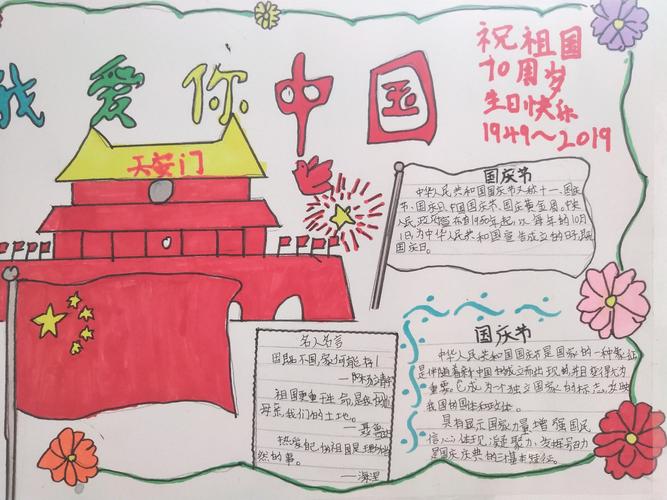 我爱你中国
祝祖国
70周岁
生日快乐
1949～2019
天安门
国庆节
中华人民共和国国庆节又称十一、国庆
节、国庆日、中国国庆节、国庆黄金周。中央
人民政府宣布自1950年起，以每年的10月
1日，为中华人民共和国宣告成立的日子，即
国庆日。
名人名言
因既不国，家何能存！
祖国更重于生命，是我们的
母亲，我们的土地。
——聂鲁达
热爱自己的祖国是理所当
然的事。
——海涅
国庆节
中华人民共和国国庆节是国家的一种象征
是伴随着新中国的成立而出现的，并且变得尤为
重要。它成为一个独立国家的标志，反映
我国的国体和政体。
具有显示国家力量、增强国民
信心，体现凝聚力，发挥号召力
是国庆庆典的三基本特征。